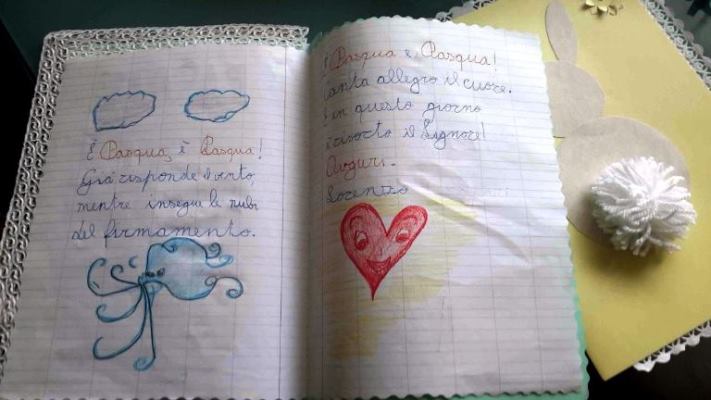 È Pasqua, è Pasqua!
Già risponde il vento,
mentre insegue le nubi
del firmamento.
È Pasqua è Pasqua!
Canta allegro il cuore.
in questo giorno
è risorto il Signore!
Auguri-
Lorenzo